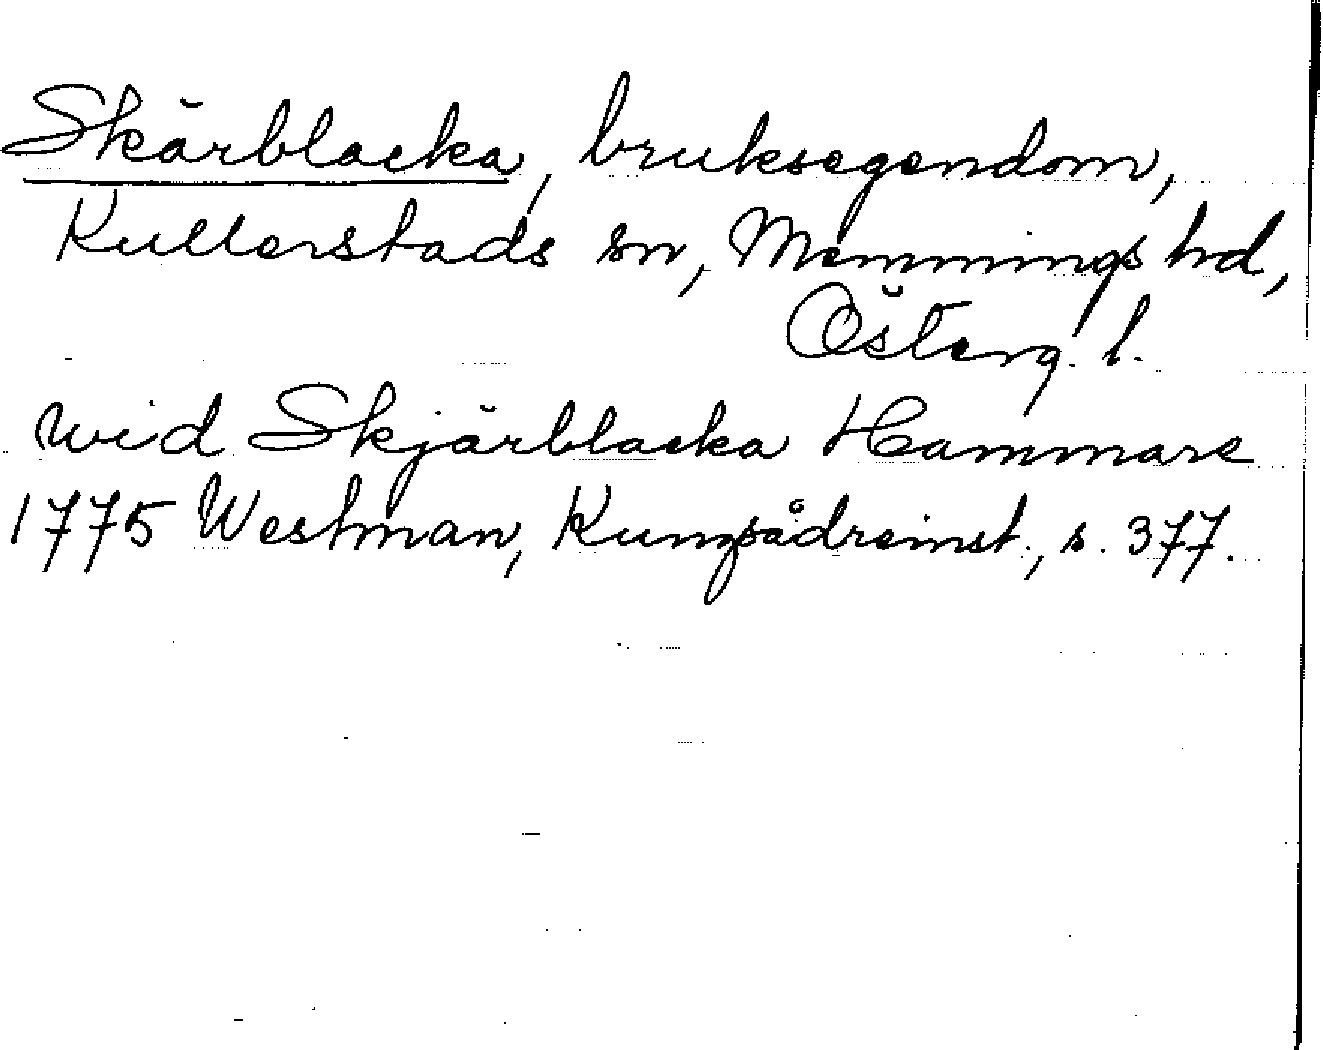 Skärblacka, bruksegendom,
Kullerstads sn, Memmings hd,
Österg. l.
wid Skjärblacka Hammare
1775 Westman, Kungsådreinst., s. 377.